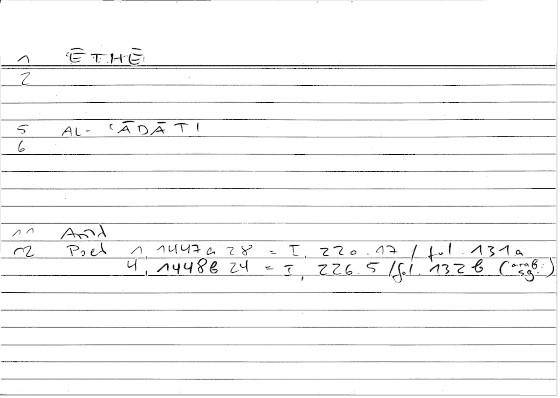 1 ĒTHĒ
2
5 AL- ʿĀDĀTI
6
11 Arist
12 Poet 1, 1447a 28 = I, 220.17 / fol. 131a
4, 1448b 24 = I, 226.5 / fol. 132b (arab. sg.)